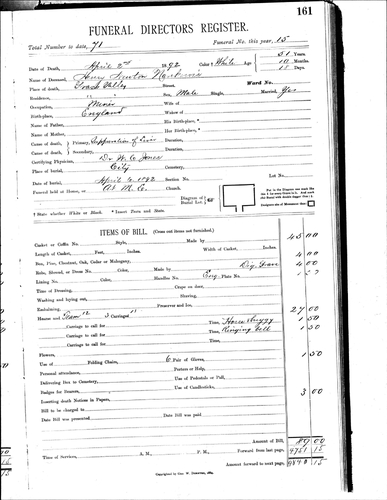 161
FUNERAL DIRECTORS REGISTER.
Total Number to date, 71 Funeral No. this year, 15
Date of Death, April 2nd 1892 Color † White Age 51 Years
10 Months
15 Days.
Name of Deceased,
Place of death, Valley Street. Ward No.
Residence, " " Sex, Male Single, Married, Yes
Occupation, Miner Wife of
Birth-place, England Widow of
Name of Father, His Birth-place, *
Name of Mother, Her Birth-place, *
Cause of death, Primary, Duration,
Cause of death, Secondary, Duration,
Certifying Physician, Dr W. C. Jones
Place of burial, City Cemetery,
Date of burial, April 4 1892 Section No. Lot No.
Funeral held at House, or At M. E. Church.
Diagram of Burial Lot
† State whether White or Black. * Insert Town and State.
ITEMS OF BILL. (Cross out items not furnished.)
Casket or Coffin No. Style, Made by 45 00
Length of Casket, Feet, Inches. Width of Casket, Inches.
Box, Pine, Chestnut, Oak, Cedar or Mahogany, 4 00
Robe, Shroud, or Dress No. Color, Made by 4 00
Lining No. Color, Handles No. Eng. Plate No.
Time of Dressing, Crape on door,
Washing and laying out, Shaving,
Embalming, Preserver and Ice,
Hearse and 3 Carriages 27 00
Carriage to call for Time, Horse & Buggy 1 50
Carriage to call for Time, Ringing Bell 1 50
Carriage to call for Time,
Flowers,
Use of Folding Chairs, 6 Pair of Gloves, 1 50
Personal attendance, Porters or Help,
Delivering Box to Cemetery, Use of Pedestals or Pall,
Badges for Bearers, Use of Candlesticks,
Inserting death Notices in Papers, 3 00
Bill to be charged to
Date Bill was presented Date Bill was paid
Amount of Bill, 89 00
Time of Services, A. M., P. M., Forward from last page, 9751 15
Amount forward to next page, 9840 15